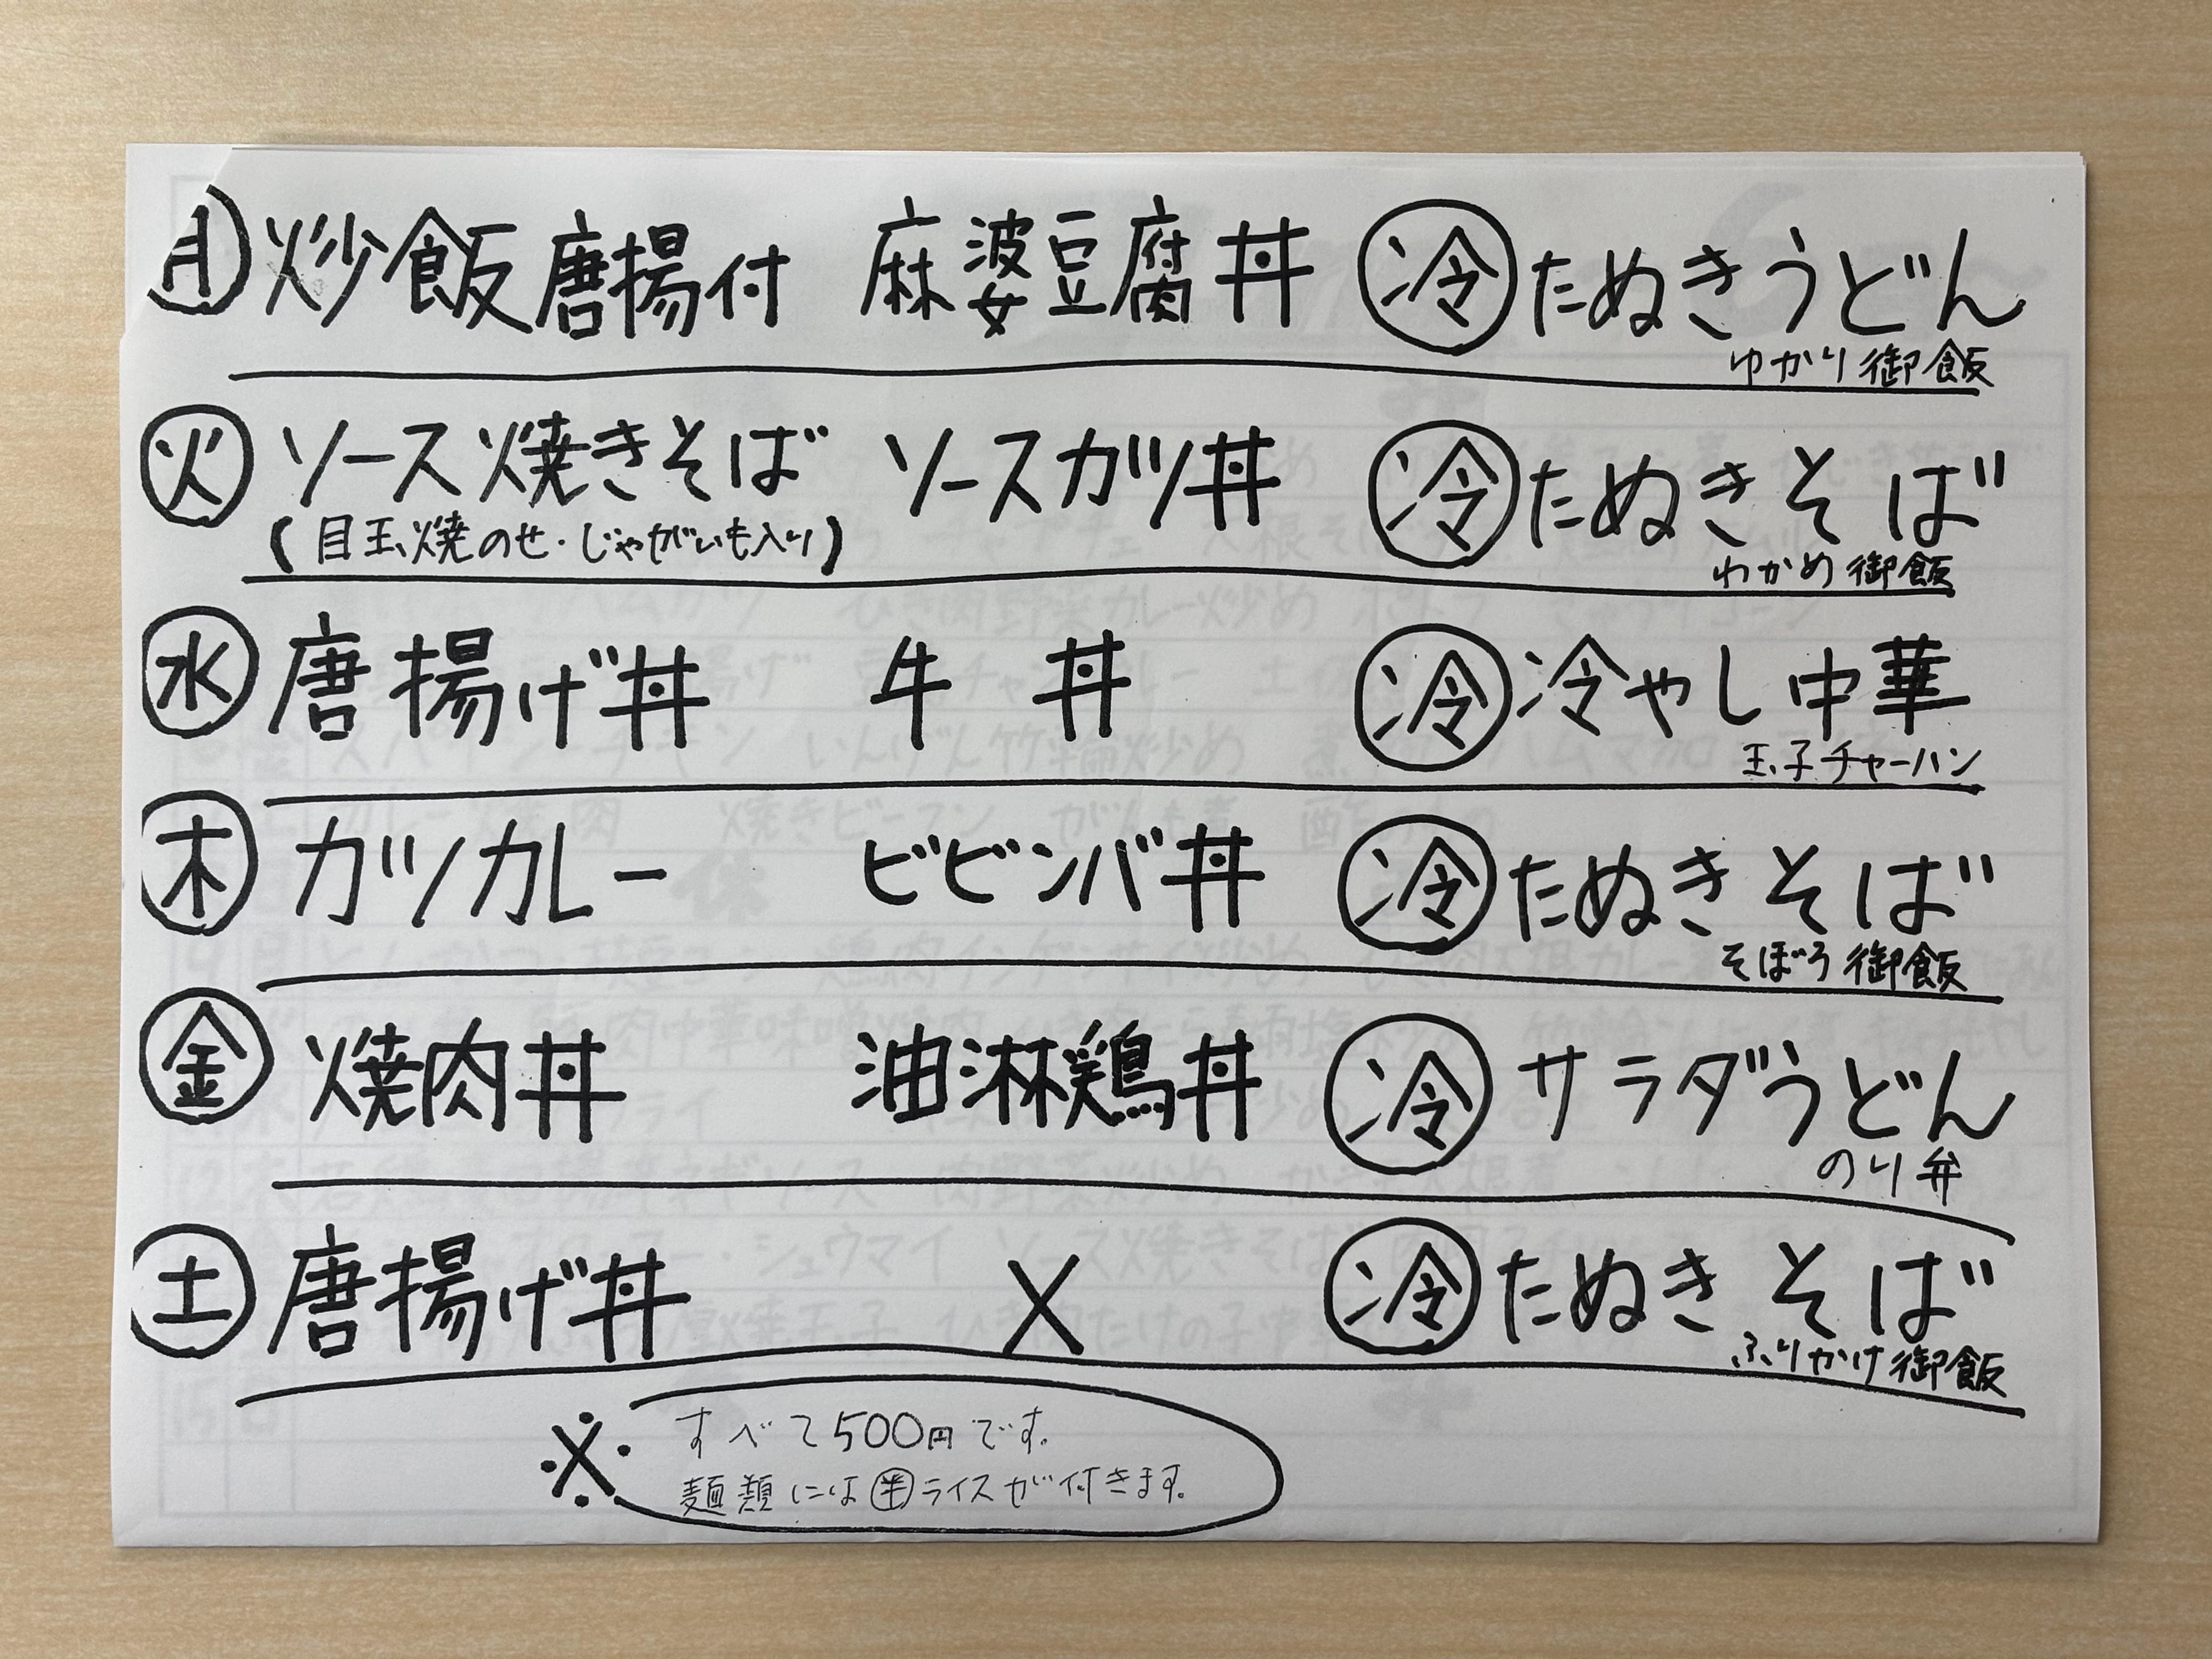 ㊊ 炒飯唐揚付 麻婆豆腐丼 冷 たぬきうどん
ゆかり御飯
㊋ ソース焼きそば ソースカツ丼 冷 たぬきそば
(目玉焼のせ・じゃがいも入り)
わかめ御飯
㊌ 唐揚げ丼 牛丼 冷 冷やし中華
玉子チャーハン
㊍ カツカレー ビビンバ丼 冷 たぬきそば
そぼろ御飯
㊎ 焼肉丼 油淋鶏丼 冷 サラダうどん
のり弁
㊏ 唐揚げ丼 X 冷 たぬきそば
ふりかけ御飯
※ すべて500円です。
麺類には半ライスが付きます。